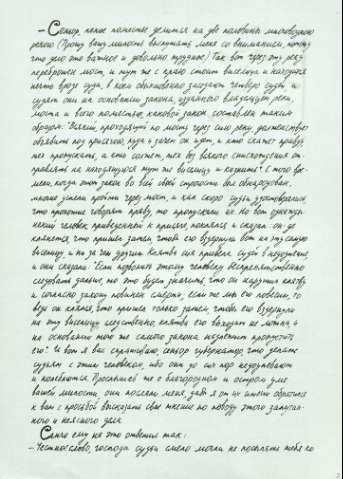 — Сеньор, некое поместье делится на две половины многоводною
рекою (Прошу вашу милость выслушать меня со вниманием, потому
что дело это важное и довольно трудное) Так вот через эту реку
переброшен мост, и тут же с краю стоит виселица и находится
нечто вроде суда, в коем обыкновенно заседают четверо судей, и
судят они на основании закона, изданного владельцем реки,
моста и всего поместья, каковой закон составлен таким
образом: "Всякий, проходящий по мосту через сию реку, долженствует
объявить под присягою, куда и зачем он идет, и кто скажет правду,
тех пропускать, а кто солжет, тех без всякого снисхождения от-
правлять на находящуюся тут же виселицу и казнить". С того вре-
мени, когда этот закон во всей своей строгости был обнародован,
многие успели пройти через мост, и как скоро судьи удостоверялись,
что прохожие говорят правду, то пропускали их. Но вот однажды
некий человек, приведенный к присяге, поклялся и сказал: он-де
клянется, что пришел затем, чтобы его вздернули вот на эту самую
виселицу, и ни за чем другим. Клятва сия привела судей в недоумение,
и они сказали: "Если позволить этому человеку беспрепятственно
следовать дальше, то это будет значить, что он нарушил клятву
и согласно закону повинен смерти; если же мы его повесим, то
ведь он клялся, что пришел только затем, чтобы его вздернули
на эту виселицу, следственно, клятва его выходит не ложна, и
на основании того же самого закона надлежит пропустить
его". И вот я вас спрашиваю, сеньор губернатор, что делать
судьям с этим человеком, ибо они до сих пор недоумевают
и колеблются. Прослышав же о благородном и остром уме
вашей милости, они послали меня, дабы я от их имени обратился
к вам с просьбой высказать свое мнение по поводу этого запутан-
ного и неясного дела.
Санчо ему на это ответил так:
— Честное слово, господа судьи смело могли не посылать тебя ко